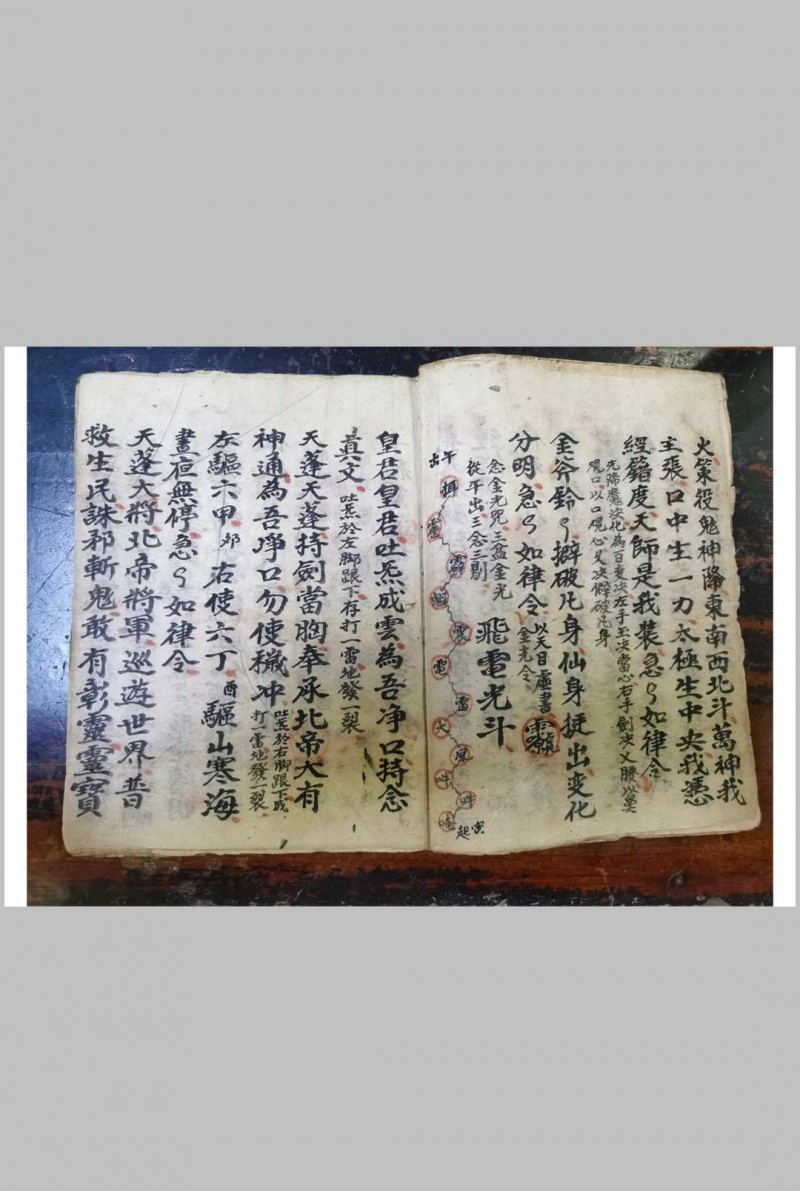 火策役鬼神降東南西北斗萬神我
主張口中生一力太極生中央我憑
經籙度天師是我裝急〻如律令
先降魔決化為百叟决左手玉决當心右手劍决乂腰
風口以口吸心乂决擗破凡身
金斧鈴〻擗破凡身仙身挺出变化
分明急〻如律令
以天目虛書
金光令
念金光咒三盆金光
從午出三念三剔
飛電光斗
午
出
電
雷
火
風
寅
起
皇君皇君吐炁成雲為吾净口持念
真文
吐炁於左脚跟下存打一雷地發一裂
天蓬天蓬持劍當胸奉承北帝大有
神通為吾凈口勿使穢冲
吐炁於右脚跟下或
打一雷地發一裂
左驅六甲
卯
右使六丁
酉
驅山寒海
晝夜無停急〻如律令
天蓬大將北帝將軍巡遊世界普
救生民誅邪斬鬼敢有彰靈靈寶